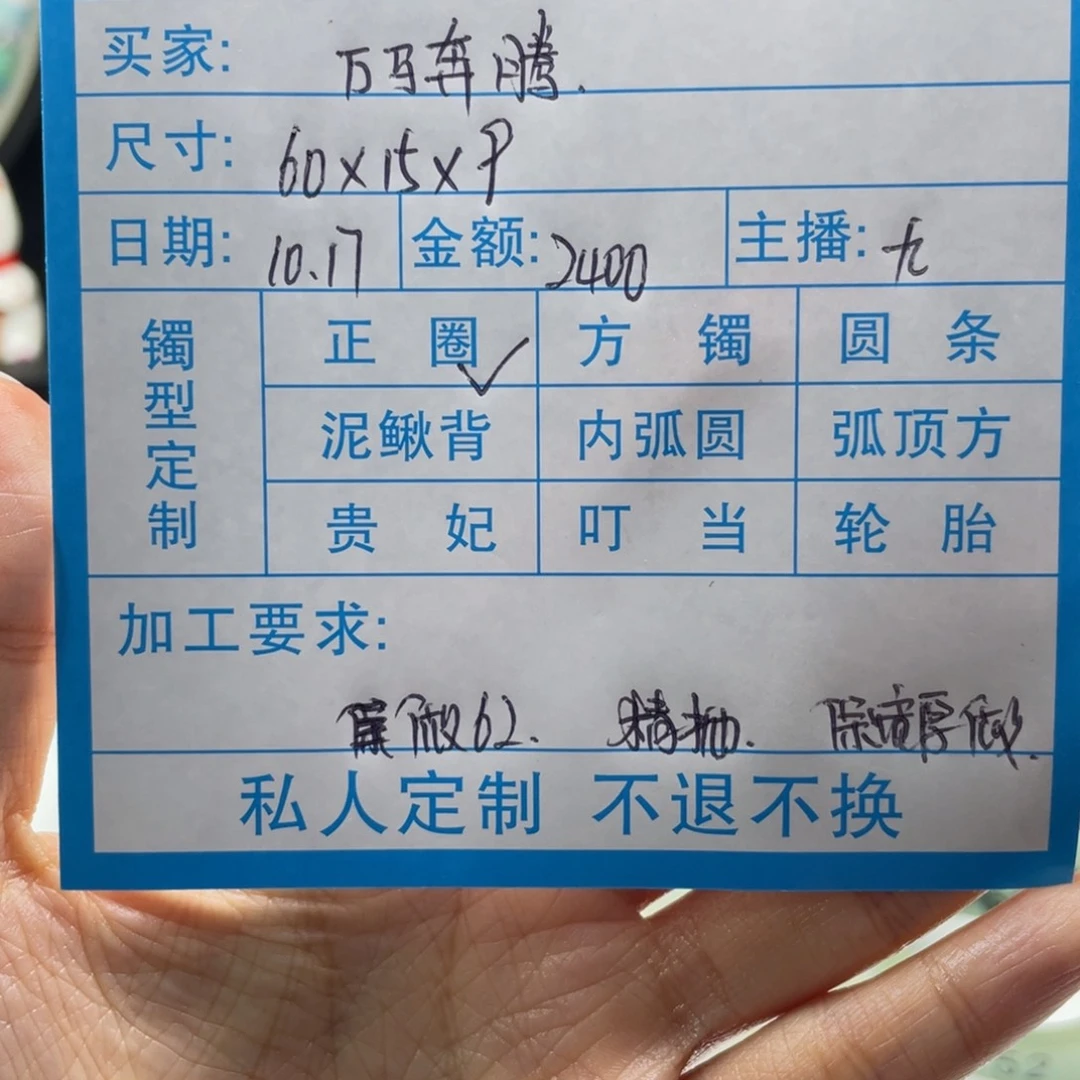 买家: 万马奔腾.
尺寸: 60×15×9
日期: 10.17 金额: 2400 主播: 九
镯型定制
正圈 ✓ 方镯 圆条
泥鳅背 内弧圆 弧顶方
贵妃 叮当 轮胎
加工要求:
做62. 精抛. 保宽厚做.
私人定制 不退不换